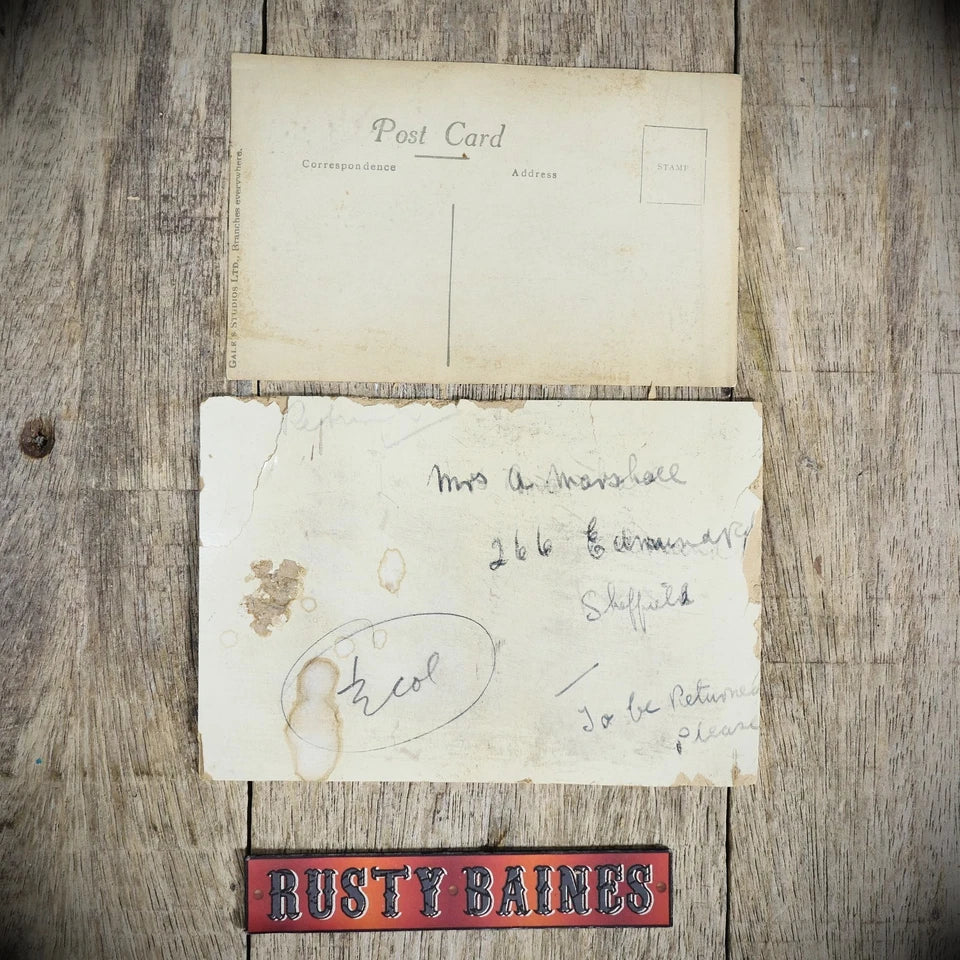 Post Card
Correspondence
Address
STAMP
GALE'S STUDIOS LTD., Branches everywhere.
Mrs A Marshall
266 Edmund Rd
Sheffield
½ col
To be Returned
Please
RUSTY BAINES